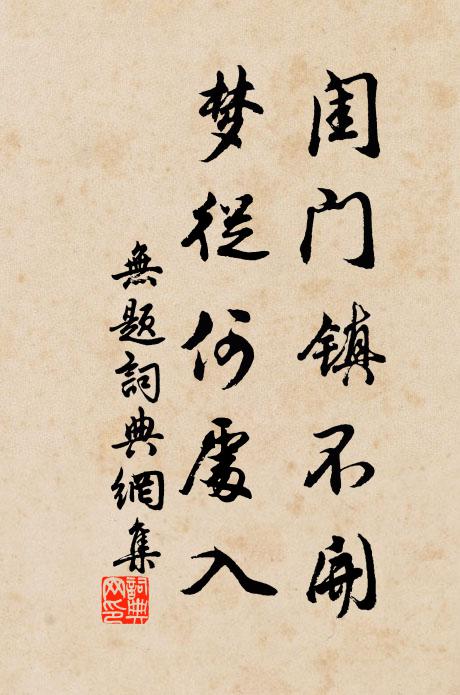 闺门镇不开
梦從何處入
無题詞典網集
詞典
网印